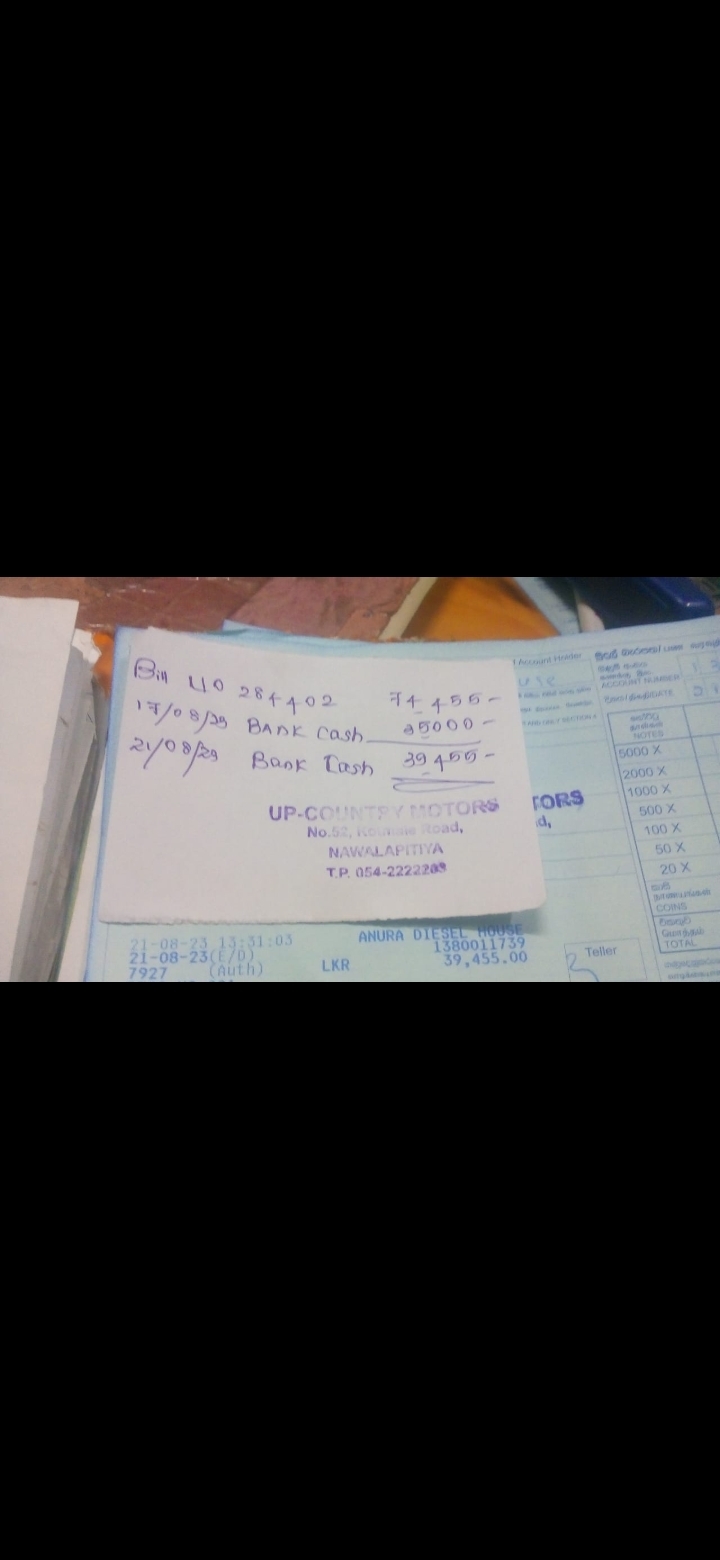 Bill NO 284402 74,455-
17/08/23 BANK Cash 35000-
21/08/23 Bank Cash 39,455-
UP-COUNTRY MOTORS
No.52, Road,
NAWALAPITIYA
T.P. 054-2222203
TORS
d,
Account Holder
ACCOUNT NUMBER
DATE
NOTES
5000 X
2000 X
1000 X
500 X
100 X
50 X
20 X
COINS
TOTAL
21-08-23 13:31:03 ANURA DIESEL HOUSE
21-08-23(E/D) 1380011739
7927 (Auth) LKR 39,455.00
Teller